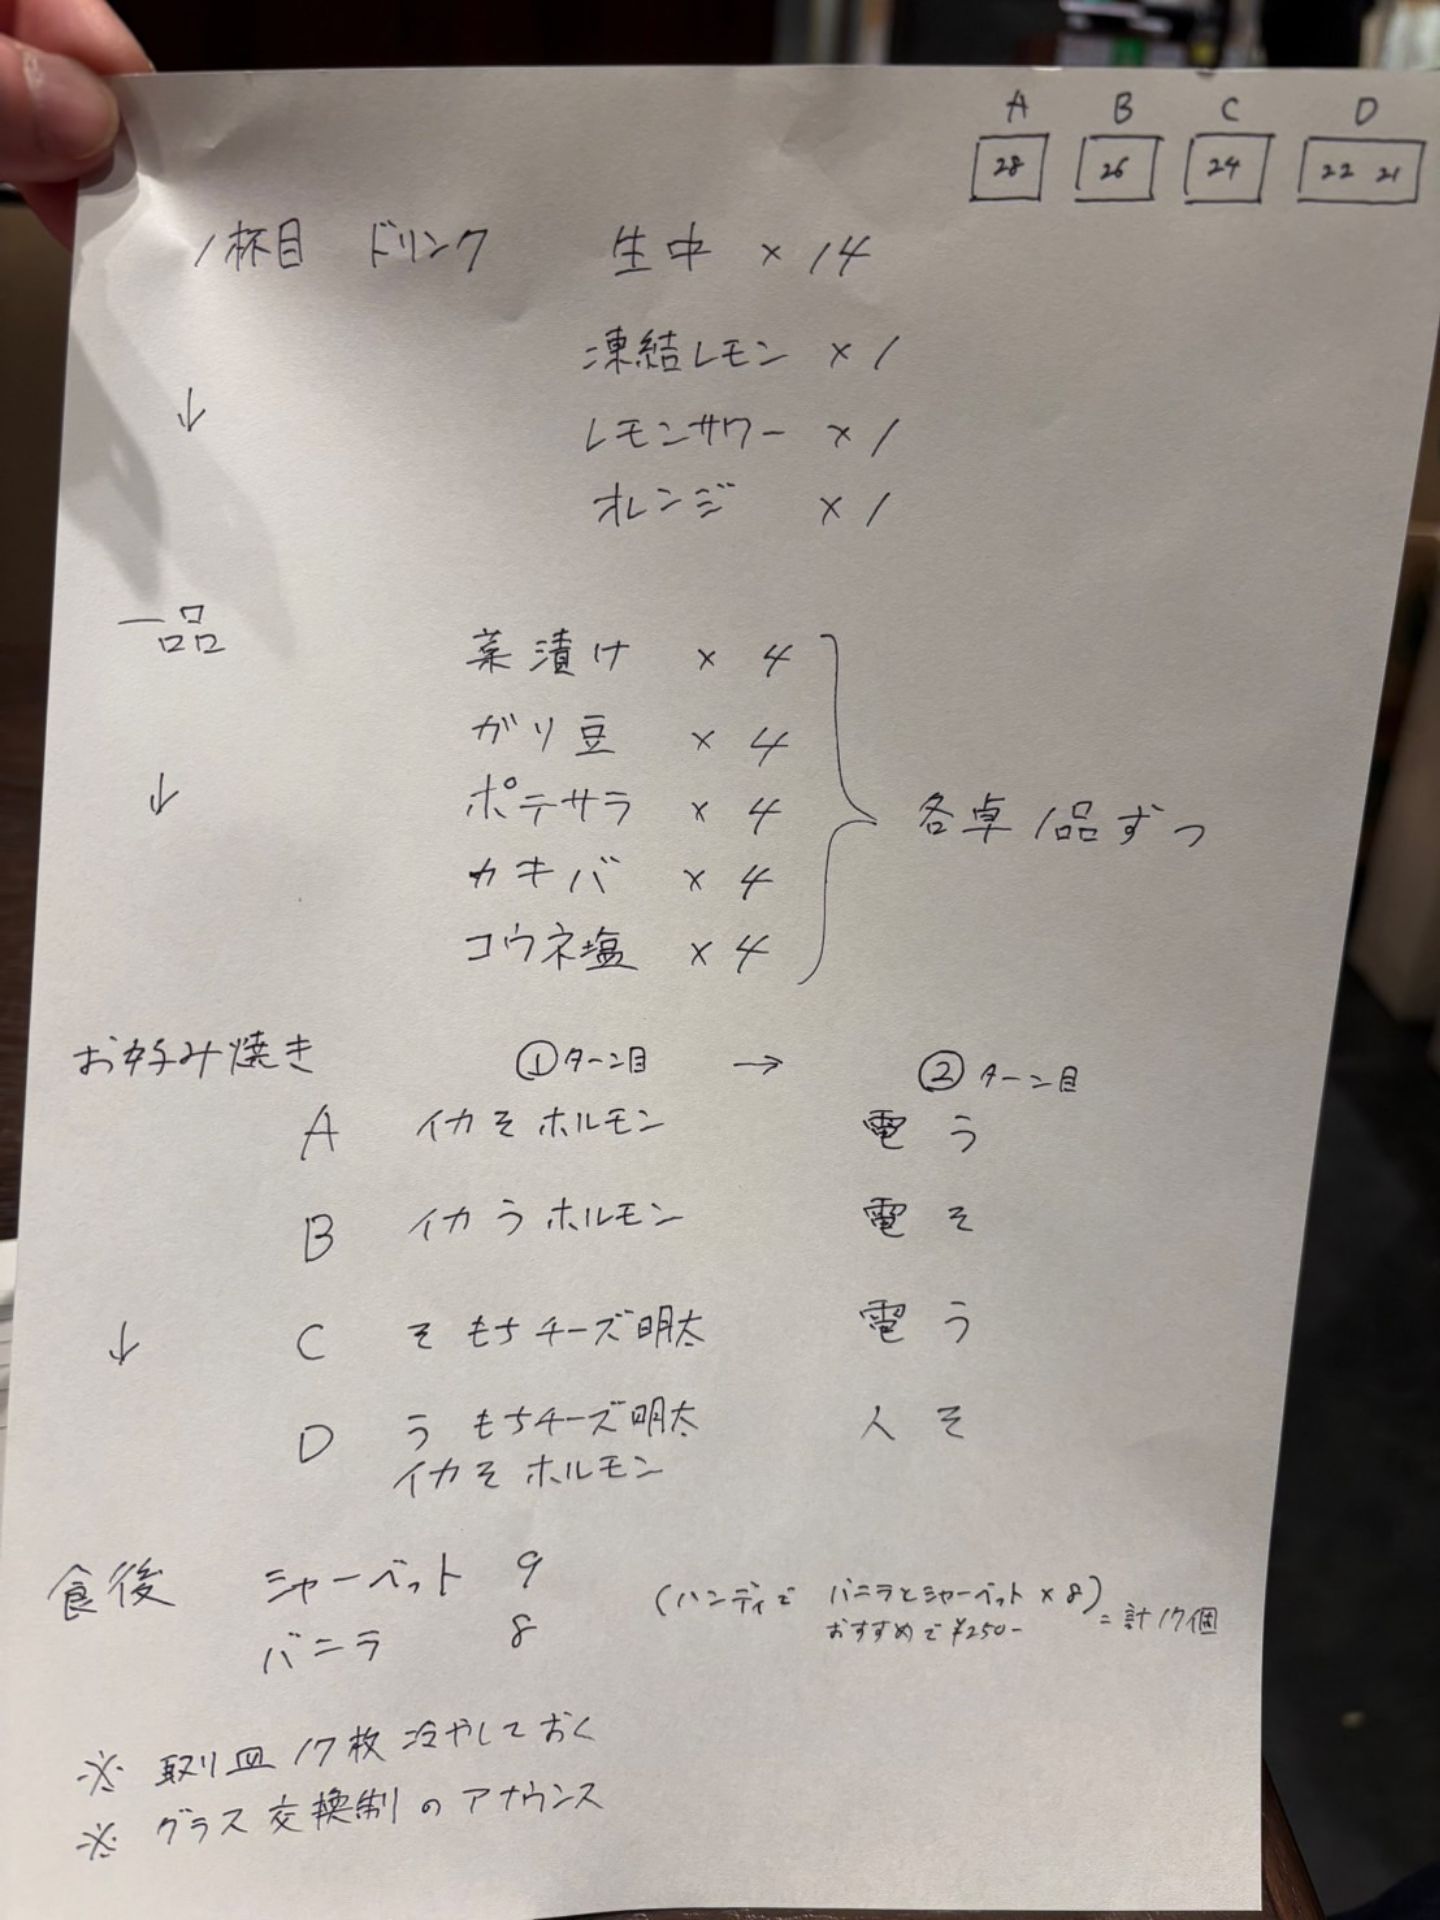 A B C D
28 26 24 22 21
1杯目 ドリンク 生中 × 14
凍結レモン × 1
↓
レモンサワー × 1
オレンジ × 1
一品
菜漬け × 4
ガリ豆 × 4
↓
ポテサラ × 4
各卓1品ずつ
カキバ × 4
コウネ塩 × 4
お好み焼き ①ターン目 → ②ターン目
A イカそ ホルモン 電 う
B イカう ホルモン 電 そ
↓
C そ もちチーズ明太 電 う
D う もちチーズ明太 人 そ
イカそ ホルモン
食後 シャーベット 9
バニラ 8
(ハンディで バニラとシャーベット × 8)
おすすめで ¥250-
= 計17個
※ 取り皿 17枚 冷やしておく
※ グラス交換制のアナウンス